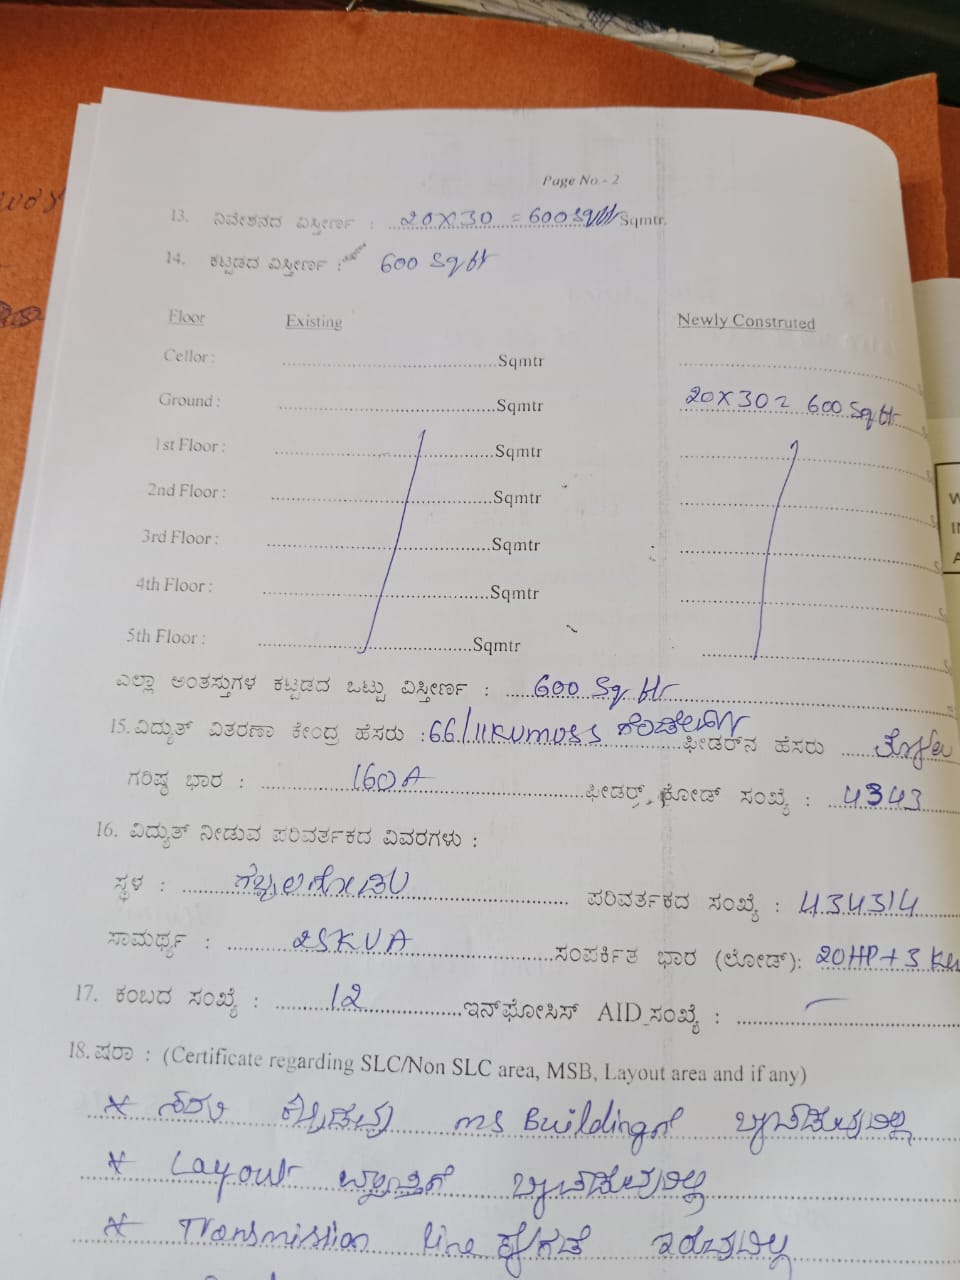 Page No.- 2
13. ನಿವೇಶನದ ವಿಸ್ತೀರ್ಣ : 20X30 = 600 Sqft Sqmtr.
14. ಕಟ್ಟಡದ ವಿಸ್ತೀರ್ಣ : 600 Sqft
Floor Existing Newly Construted
Cellor : Sqmtr
Ground : Sqmtr 20X30= 600 Sqft
1st Floor : Sqmtr
2nd Floor : Sqmtr
3rd Floor : Sqmtr
4th Floor : Sqmtr
5th Floor : Sqmtr
ಎಲ್ಲಾ ಅಂತಸ್ತುಗಳ ಕಟ್ಟಡದ ಒಟ್ಟು ವಿಸ್ತೀರ್ಣ : 600 Sqft
15. ವಿದ್ಯುತ್ ವಿತರಣಾ ಕೇಂದ್ರ ಹೆಸರು : 66/11KV MUSS ಫೀಡರ್‌ನ ಹೆಸರು
ಗರಿಷ್ಠ ಭಾರ : 160A ಫೀಡರ್ ಕೋಡ್ ಸಂಖ್ಯೆ : 4343
16. ವಿದ್ಯುತ್ ನೀಡುವ ಪರಿವರ್ತಕದ ವಿವರಗಳು :
ಸ್ಥಳ : ಪರಿವರ್ತಕದ ಸಂಖ್ಯೆ : 434314
ಸಾಮರ್ಥ್ಯ : 25KVA ಸಂಪರ್ಕಿತ ಭಾರ (ಲೋಡ್): 20HP+3 Kw
17. ಕಂಬದ ಸಂಖ್ಯೆ : 12 ಇನ್‌ಫೋಸಿಸ್ AID ಸಂಖ್ಯೆ :
18. ಷರಾ : (Certificate regarding SLC/Non SLC area, MSB, Layout area and if any)
* ಸದರಿ ಕಟ್ಟಡವು MS Buildingಗೆ
* Layout
* Transmission line ಇರುವುದಿಲ್ಲ